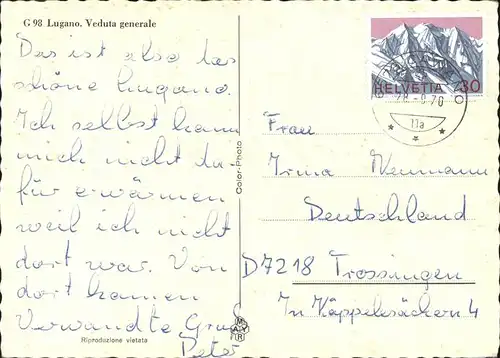 G 98 Lugano. Veduta generale
Das ist also das
schöne Lugano.
Ich selbst kann
mich nicht da-
für erwärmen
weil ich nicht
dort war. Von
dort kamen
Verwandte Gruß
Peter
Riproduzione vietata
Color-Photo
MAYR
HELVETIA 30
11a
Frau
Irma Neumann
Deutschland
D7218 Trossingen
In Käppelesäckern 4